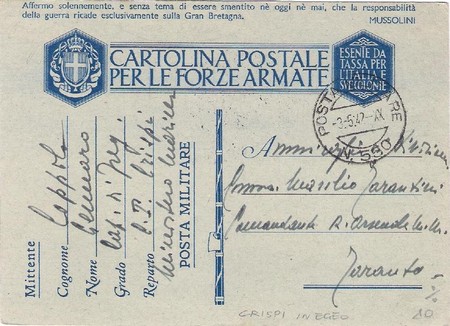 Affermo solennemente, e senza tema di essere smentito nè oggi nè mai, che la responsabilità
della guerra ricade esclusivamente sulla Gran Bretagna.
MUSSOLINI
CARTOLINA POSTALE
PER LE FORZE ARMATE
ESENTE DA
TASSA PER
L'ITALIA E
SUE COLONIE
POSTA
ARE
-3-5-42-XX
N. 550
Mittente
Cognome
Nome Gennaro
Grado
Reparto Crispi
Ministero Marina
POSTA MILITARE
Comandante R. Arsenale M.M.
Taranto
CRISPI IN EGEO